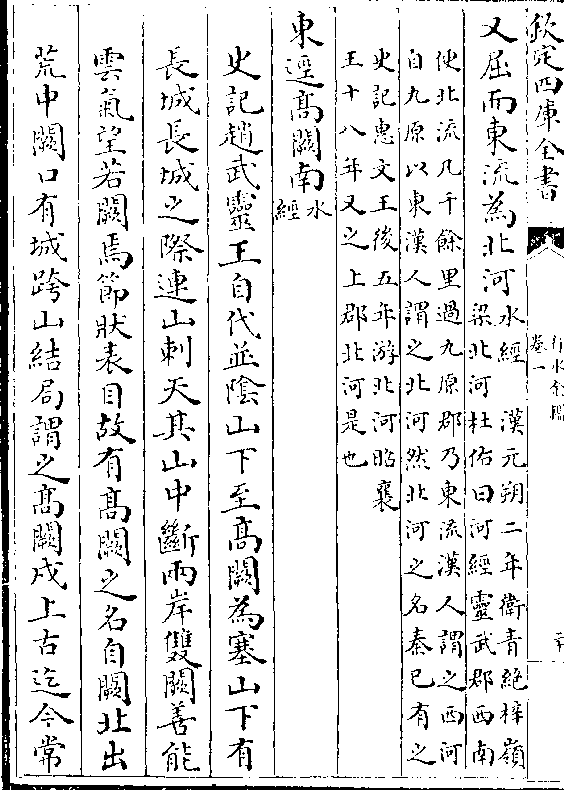 欽定四庫全書
行水金鑑
卷一
又屈而東流為北河水經 漢元朔二年衛青絶梓嶺
梁北河杜佑曰河經靈武郡西南
便北流凡千餘里過九原郡乃東流漢人謂之西河
自九原以東漢人謂之北河然北河之名秦已有之
史記惠文王後五年游北河昭襄
王十八年又之上郡北河是也
東逕高闕南水經
史記趙武靈王自代並陰山下至高闕為塞山下有
長城長城之際連山刺天其山中斷兩岸雙闕善能
雲氣望若闕焉節狀表目故有高闕之名自闕北出
荒中闕口有城跨山結局謂之高闕戍上古迄今常